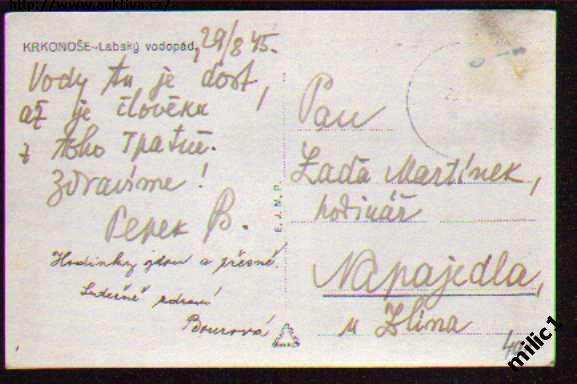 http://www.auktiva.cz/
KRKONOŠE-Labský vodopád,
29/8 45.
Vody tu je dost,
až je člověku
z toho špatně.
Zdravíme!
Pepek B.
Hodinky jdou a přesně.
Srdečně zdraví
Bourová
E. J. N. P.
Pan
Láďa Martínek,
hodinář
Napajedla,
u Zlína
40
milic1